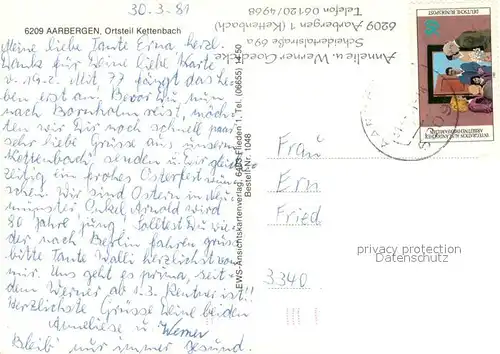 30.3.81
6209 AARBERGEN, Ortsteil Kettenbach
Meine liebe Tante Erna, herzl.
Dank für Deine liebe Karte
v. 19.2. Mit 77 fängt das Le-
ben erst an. Bevor Du nun
nach Bornholm reist, möch-
ten wir Dir noch schnell paar
sehr liebe Grüsse aus unserm
Kettenbach senden u. Dir gleich-
zeitig ein frohes Osterfest wün-
schen. Wir sind Ostern in Neu-
münster Onkel Arnold wird
80 Jahre jung. Solltest Du wie-
der nach Berlin fahren grüsse
bitte Tante Walli herzlichst von
mir. Uns geht es prima, seit-
dem Werner ab 1.3. Rentner ist!!
Herzlichste Grüsse Deine beiden
Anneliese u. Werner
Bleib' nur immer gesund.
EWS-Ansichtskartenverlag, 6403 Flieden 1, Tel. (06655) 1450
Bestell-Nr. 1048
Annelie u. Werner Goedcke
Scheidertalstraße 69a
6209 Aarbergen 1 (Kettenbach)
Telefon 06120/4968
DEUTSCHE BUNDESPOST
INTEGRATION AUSLÄNDISCHER
ARBEITNEHMERFAMILIEN
Frau
Ern
Fried
3340
privacy protection
Datenschutz